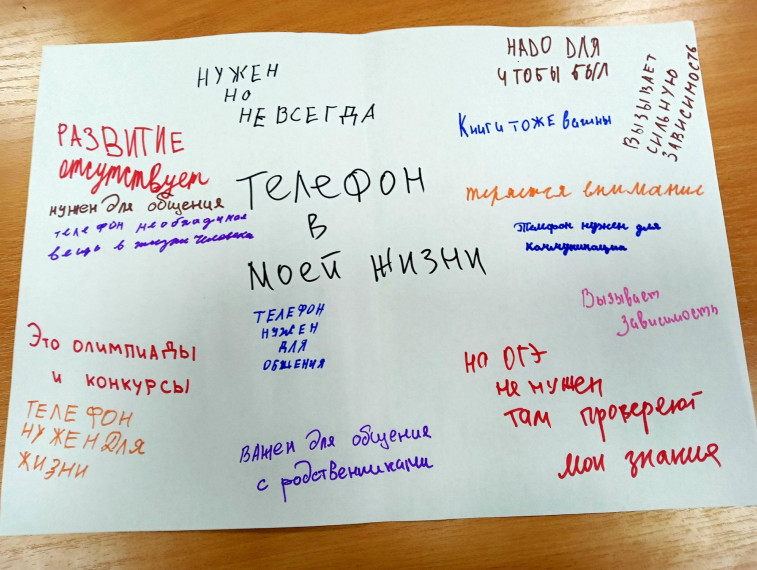 НУЖЕН
НО
НЕ ВСЕГДА
НАДО ДЛЯ
ЧТОБЫ БЫЛ
ВЫЗЫВАЕТ
СИЛЬНУЮ
ЗАВИСИМОСТЬ
Книги тоже важны
РАЗВИТИЕ
отсутствует
нужен для общения
телефон необходимая
вещь в жизни человека
ТЕЛЕФОН
В
МОЕЙ ЖИЗНИ
теряется внимание
Телефон нужен для
коммуникации
Вызывает
Зависимость
ТЕЛЕФОН
НУЖЕН
ДЛЯ
ОБЩЕНИЯ
Это ОЛИМПИАДЫ
и КОНКУРСЫ
ТЕЛЕФОН
НУЖЕН ДЛЯ
ЖИЗНИ
НА ОГЭ
не нужен
там провереют
мои знания
ВАЖЕН для общения
с родственниками